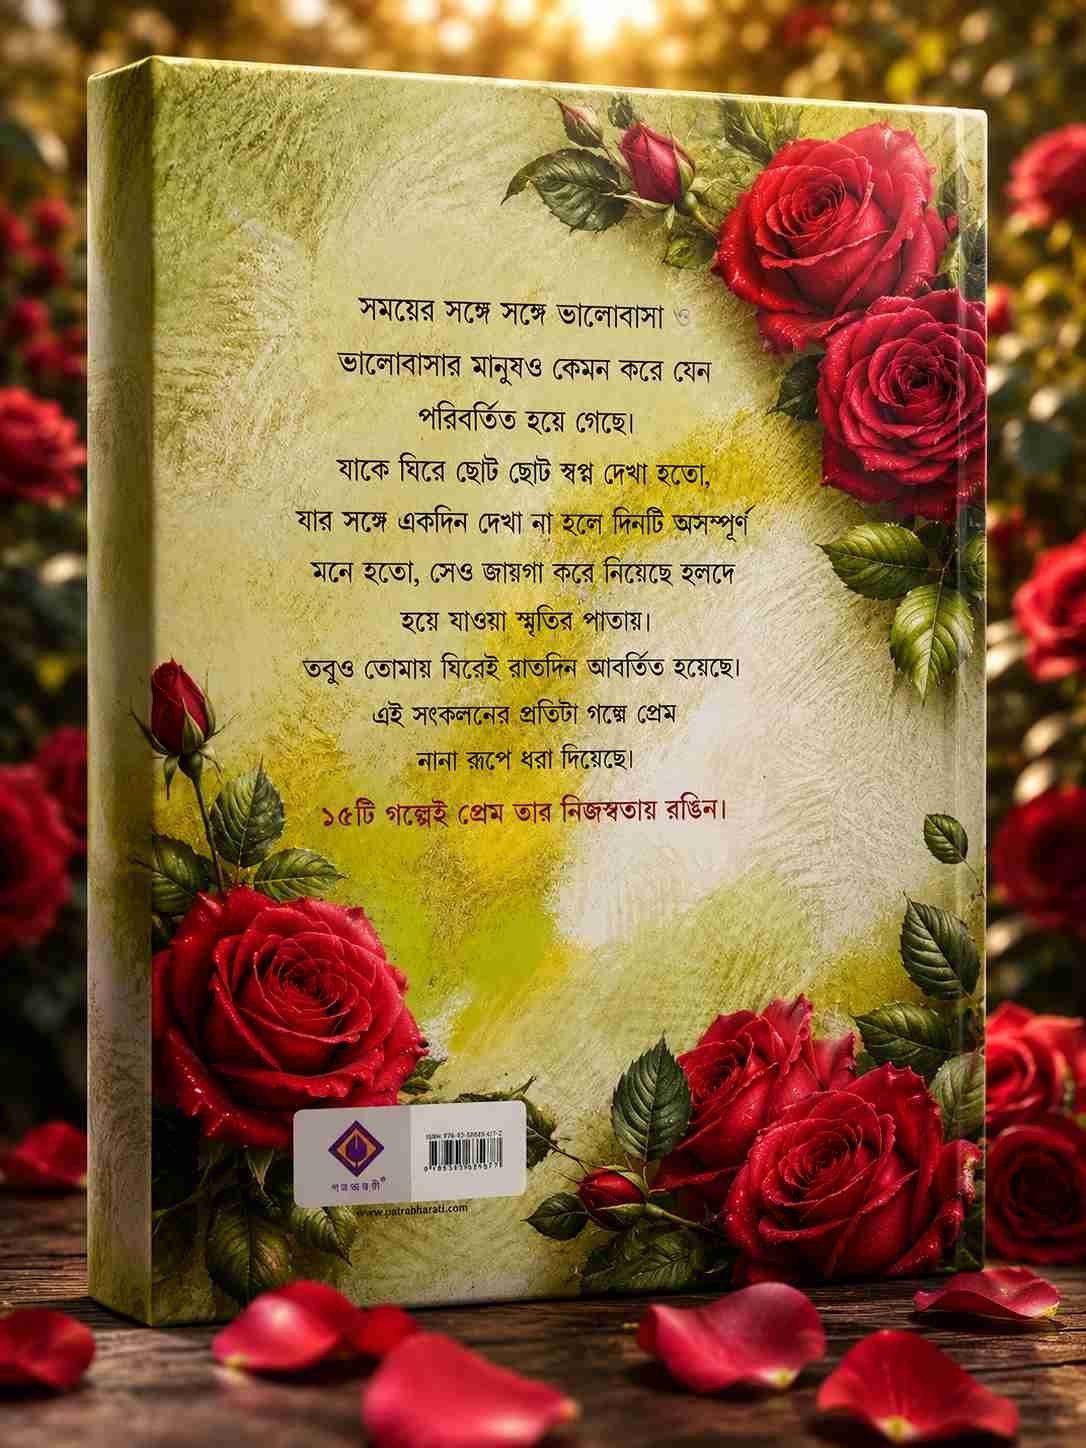 সময়ের সঙ্গে সঙ্গে ভালোবাসা ও
ভালোবাসার মানুষও কেমন করে যেন
পরিবর্তিত হয়ে গেছে।
যাকে ঘিরে ছোট ছোট স্বপ্ন দেখা হতো,
যার সঙ্গে একদিন দেখা না হলে দিনটি অসম্পূর্ণ
মনে হতো, সেও জায়গা করে নিয়েছে হলদে
হয়ে যাওয়া স্মৃতির পাতায়।
তবুও তোমায় ঘিরেই রাতদিন আবর্তিত হয়েছে।
এই সংকলনের প্রতিটা গল্পে প্রেম
নানা রূপে ধরা দিয়েছে।
১৫টি গল্পেই প্রেম তার নিজস্বতায় রঙিন।
www.patrabharati.com